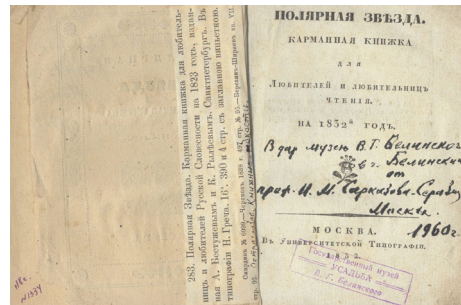 283. Полярная Звѣзда. Карманная книжка для любитель-
ницъ и любителей Русской Словесности на 1823 годъ, издан-
ная А. Бестужевымъ и К. Рылѣевымъ. Санктпетербургъ. Въ
типографіи Н. Греча. 16°. 390 и 4 стр. съ заглавною виньеткою.
ПОЛЯРНАЯ ЗВѢЗДА.
КАРМАННАЯ КНИЖКА
ДЛЯ
ЛЮБИТЕЛЕЙ И ЛЮБИТЕЛЬНИЦЪ
ЧТЕНІЯ.
НА 1832й ГОДЪ.
В дар музею В. Г. Белинского
в г. Белинский
от
проф. И. М.
Москва.
1960 г.
МОСКВА.
ВЪ УНИВЕРСИТЕТСКОЙ ТИПОГРАФІИ.
Государственный музей
УСАДЬБА
В. Г. Белинского